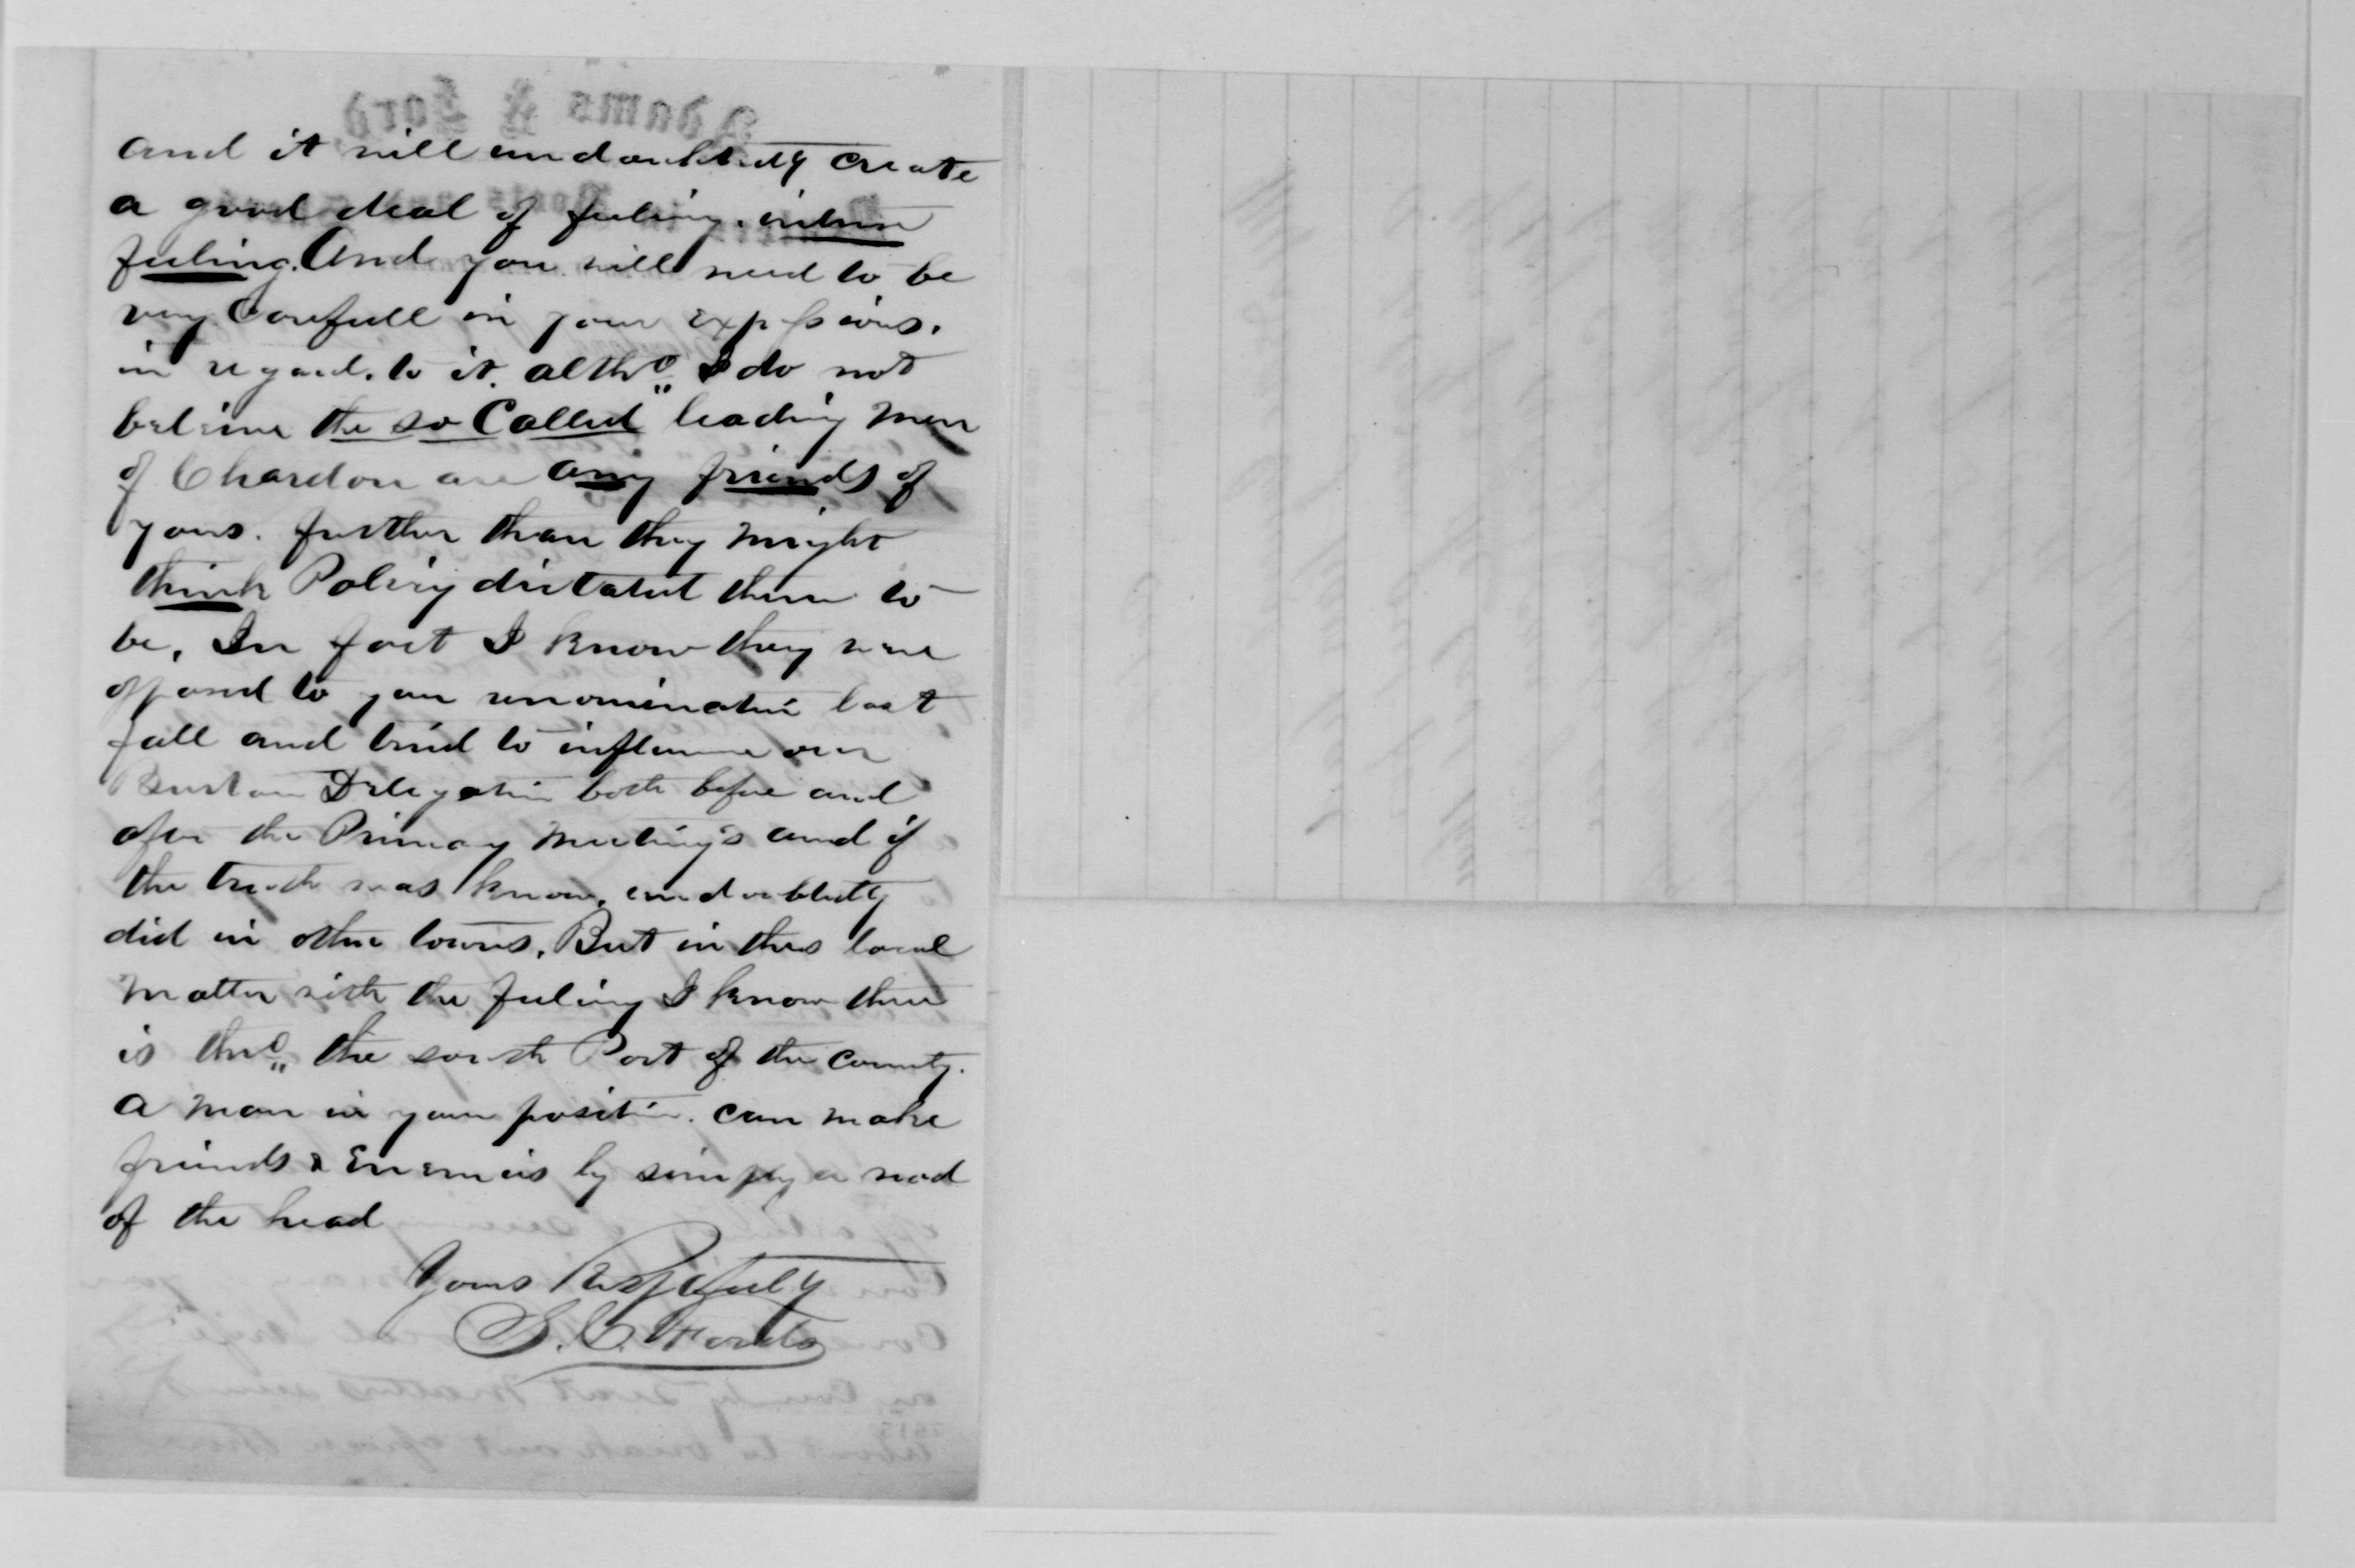 and it will undoubtedly create
a good deal of feeling. intense
feeling. And you will need to be
very Carefull in your expressions.
in regard. to it. altho" I do not
beleive the so Called leading men
of Chardon are any friends of
yours. further than they might
think Policy dictated them to
be, In fact I know they were
opposed to your renomination last
fall and tried to influence our
Burton Delegation both before and
after the Primary Meeting's and if
the truth was know, undoubtedly
did in other towns. But in this local
matter with the feeling I know there
is thro" the south Part of the County.
a man in your position. can make
friends & Enemies by simply a nod
of the head
Yours Respectfully